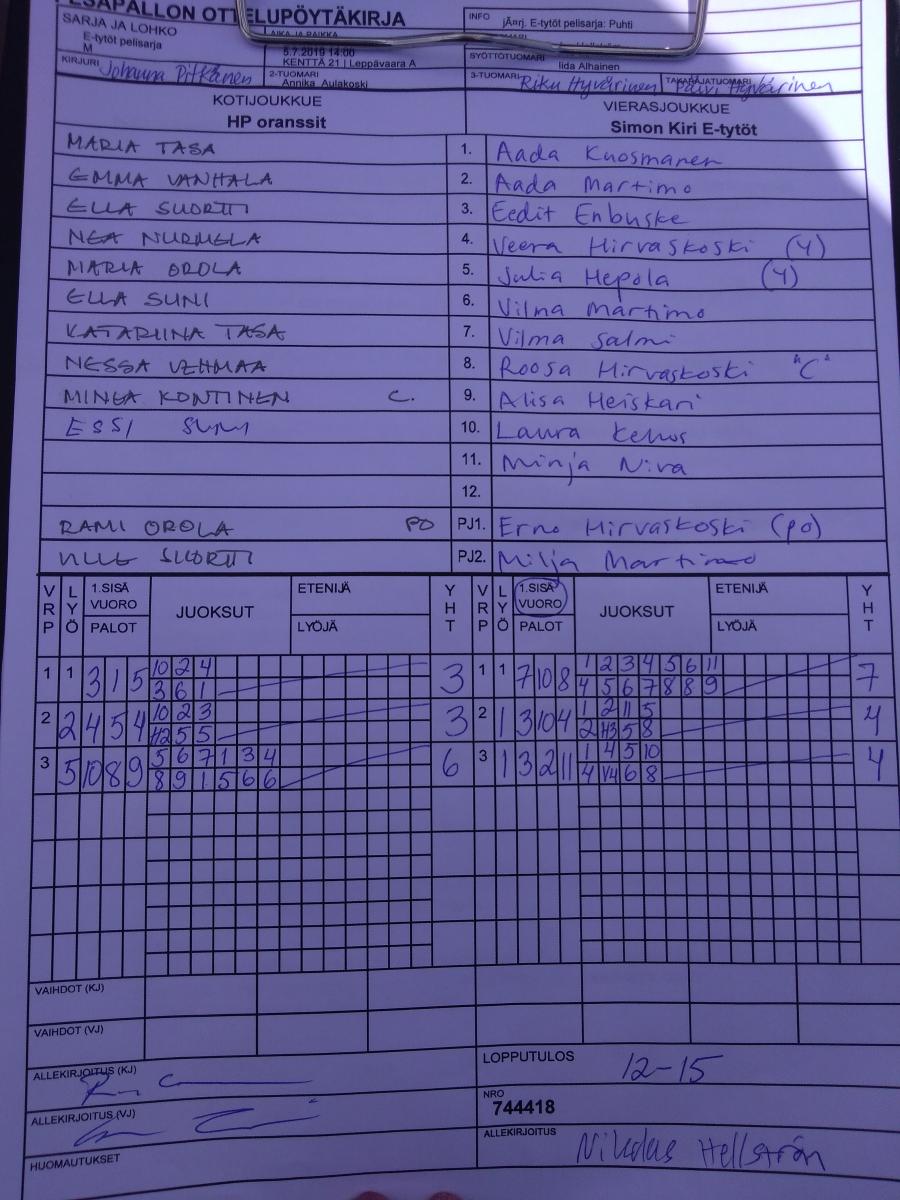 PESAPALLON OTTELUPÖYTÄKIRJA
INFO jÃ¤rj. E-tytöt pelisarja: Puhti
SARJA JA LOHKO
E-tytöt pelisarja
M
AIKA JA PAIKKA
5.7.2019 14:00
KENTTÄ 21 | Leppävaara A
SYÖTTÖTUOMARI Iida Alhainen
KIRJURI Johanna Pitkänen
2-TUOMARI Annika Aulakoski
3-TUOMARI Riku Hyvärinen
TAKARAJATUOMARI Päivi Hyvärinen
KOTIJOUKKUE
HP oranssit
VIERASJOUKKUE
Simon Kiri E-tytöt
MARIA TASA 1. Aada Kuosmanen
EMMA VANHALA 2. Aada Martimo
ELLA SUORTTI 3. Eedit Enbuske
NEA NURMELA 4. Veera Hirvaskoski (Y)
MARIA OROLA 5. Julia Hepola (Y)
ELLA SUNI 6. Vilna Martimo
KATARIINA TASA 7. Vilma Salmi
NESSA VEHMAA 8. Roosa Hirvaskoski "C"
MINEA KONTINEN C. 9. Alisa Heiskari
ESSI SUNI 10. Laura Kehus
11. Minja Niva
12.
RAMI OROLA PO PJ1. Erno Hirvaskoski (po)
VILLE SUORTTI PJ2. Milja Martimo
VRP LYÖ 1.SISÄ VUORO PALOT JUOKSUT ETENIJÄ LYÖJÄ YHT VRP LYÖ 1.SISÄ VUORO PALOT JUOKSUT ETENIJÄ LYÖJÄ YHT
1 1 3 1 5 10 2 4 3 1 1 7 10 8 1 2 3 4 5 6 11 7
3 6 1 4 5 6 7 8 8 9
2 2 4 5 4 10 2 3 3 2 1 3 10 4 1 2 11 5 4
H2 5 5 2 H3 5 8
3 5 10 8 9 5 6 7 1 3 4 6 3 1 3 2 11 1 4 5 10 4
8 9 1 5 6 6 4 V4 6 8
VAIHDOT (KJ)
VAIHDOT (VJ)
ALLEKIRJOITUS (KJ)
LOPPUTULOS 12-15
ALLEKIRJOITUS (VJ)
NRO
744418
HUOMAUTUKSET
ALLEKIRJOITUS Nikolas Hellström